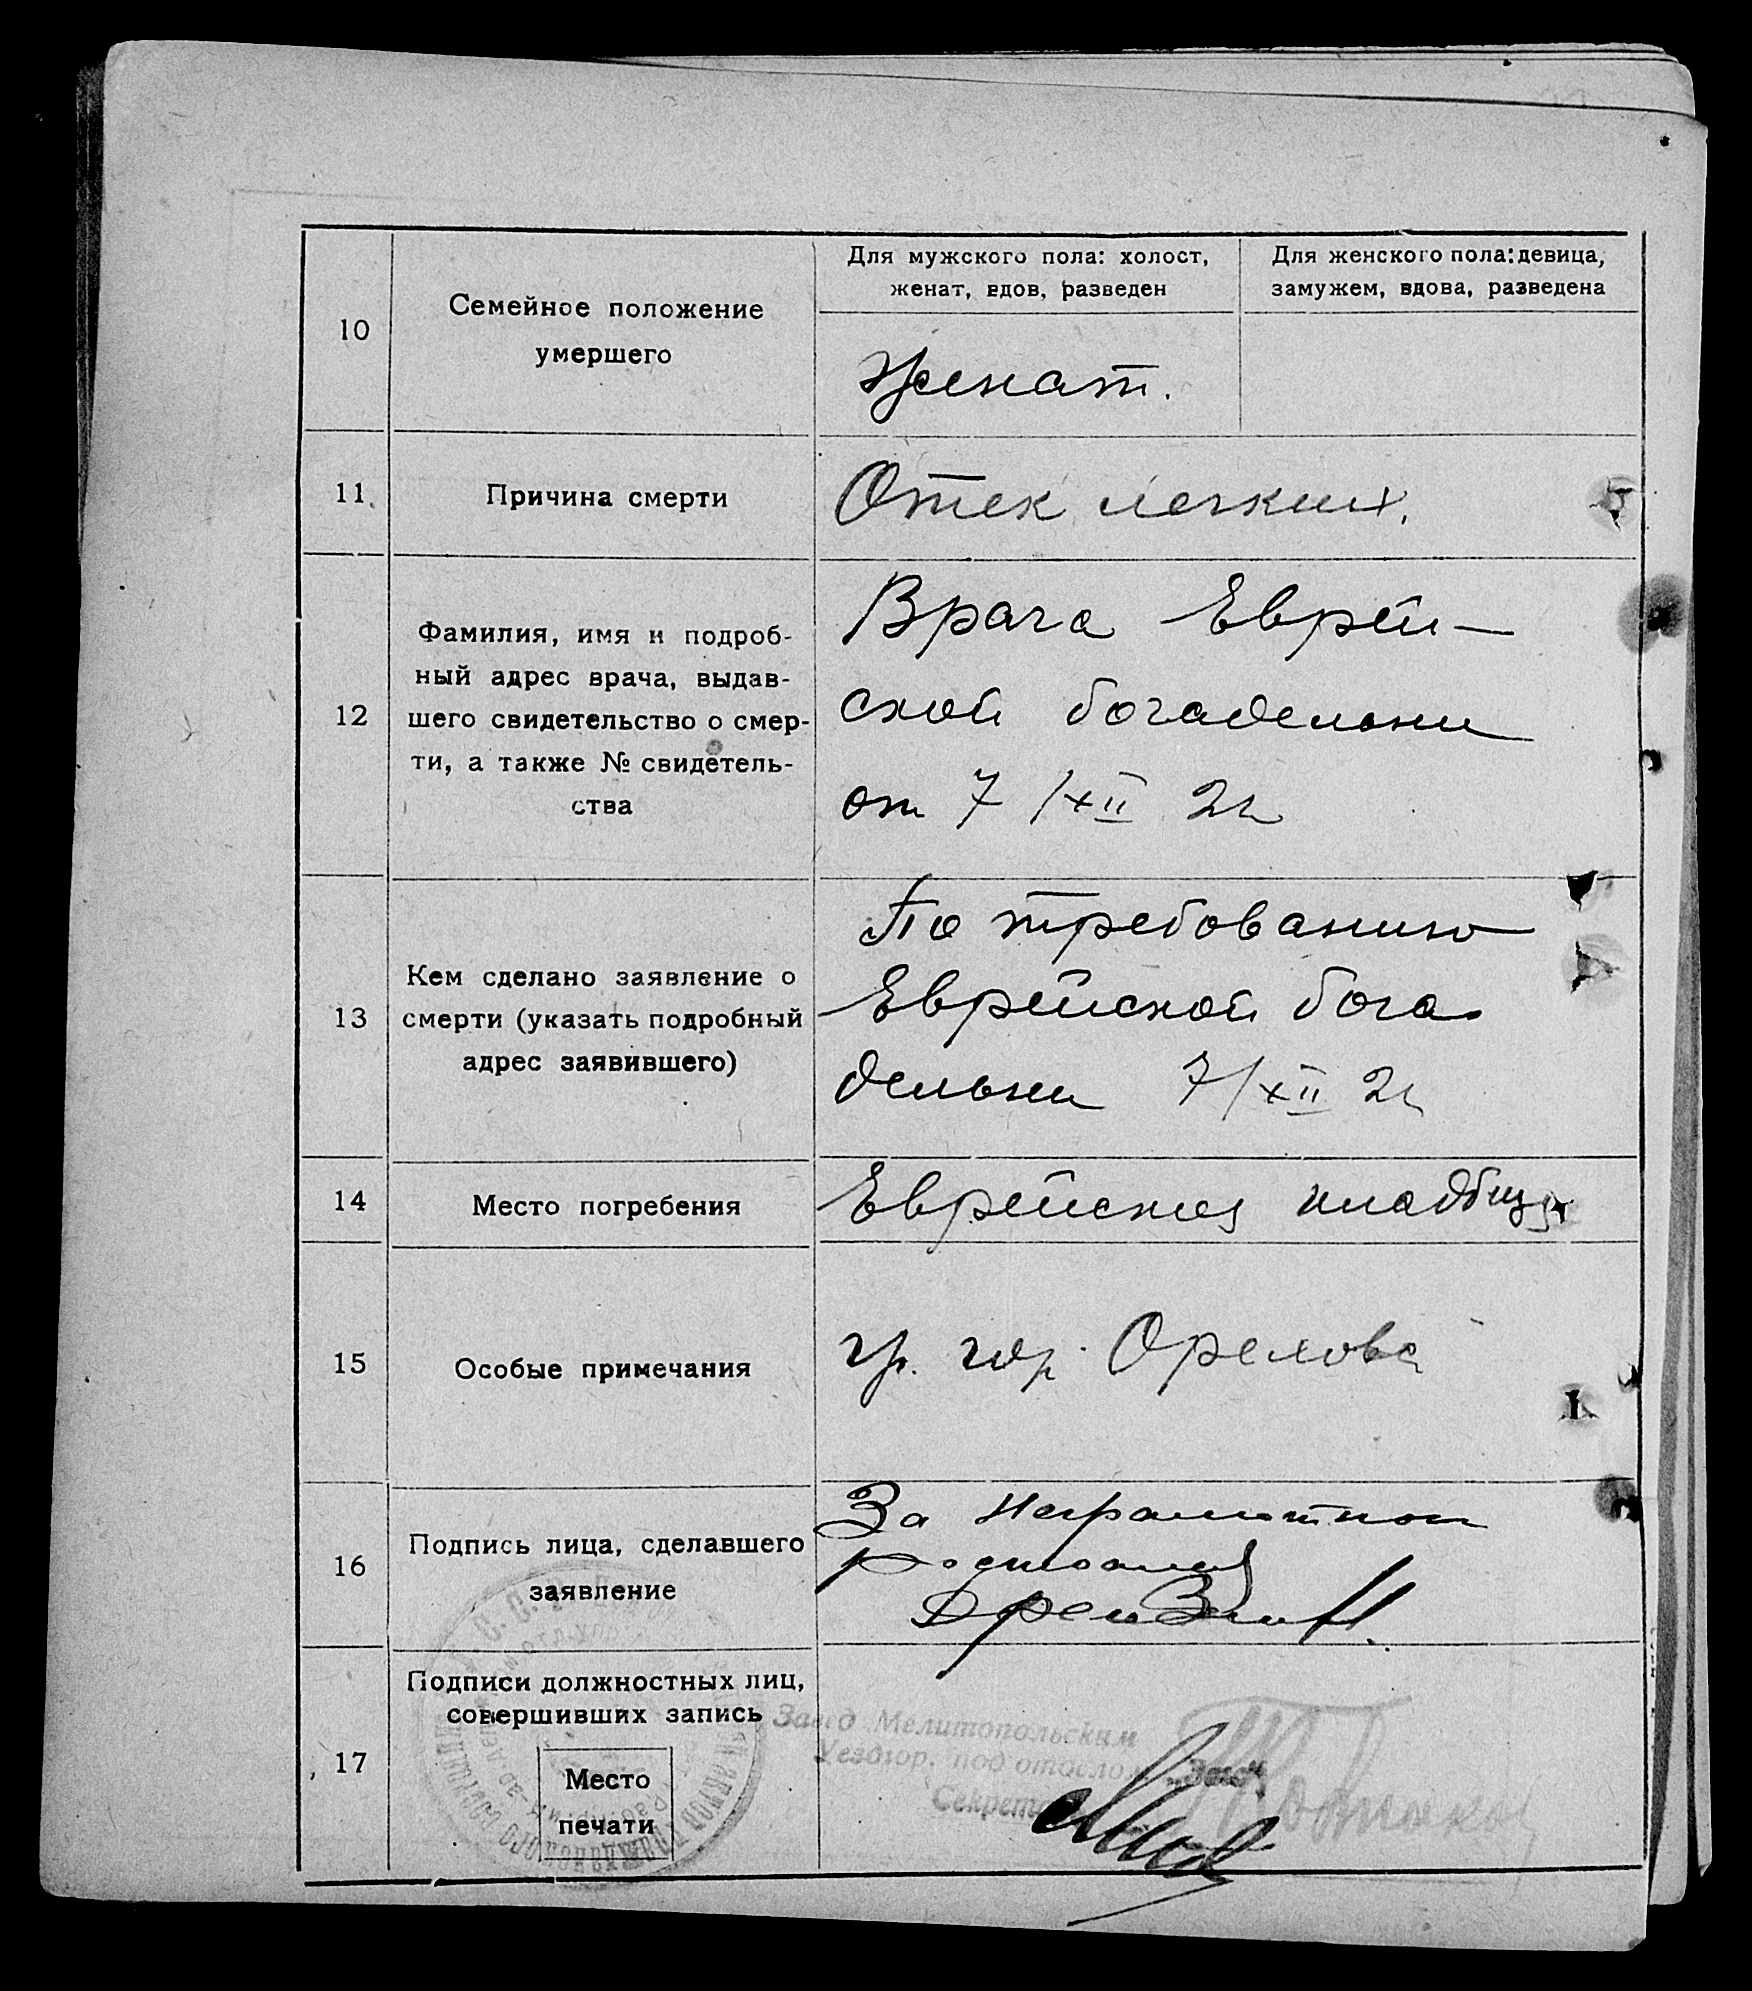 Для мужского пола: холост,
женат, вдов, разведен
Для женского пола: девица,
замужем, вдова, разведена
10
Семейное положение
умершего
женат.
11.
Причина смерти
Отек легких.
12
Фамилия, имя и подроб-
ный адрес врача, выдав-
шего свидетельство о смер-
ти, а также № свидетель-
ства
Врача Еврей-
ской богадельни
от 7/XII 2
13
Кем сделано заявление о
смерти (указать подробный
адрес заявившего)
По требованию
Еврейской бога
дельни 7/XII 2
14
Место погребения
Еврейское кладбище
15
Особые примечания
гр. гор. Орехова
16
Подпись лица, сделавшего
заявление
За неграмотной
17
Подписи должностных лиц,
совершивших запись
Место
печати
Завед Мелитопольским
Уездгор. подотделом „Загс“
Секретарь